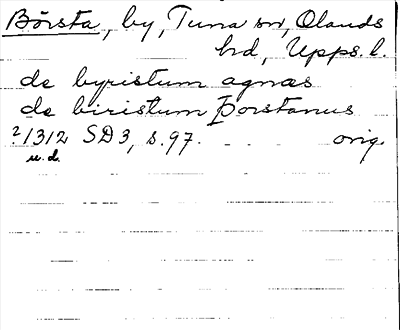 Börsta, by, Tuna sn, Olands
hd, Upps. l.
de byristum agnæs
de biristum Þorstanus
?1312 SD3, s. 97. orig.
u.d.